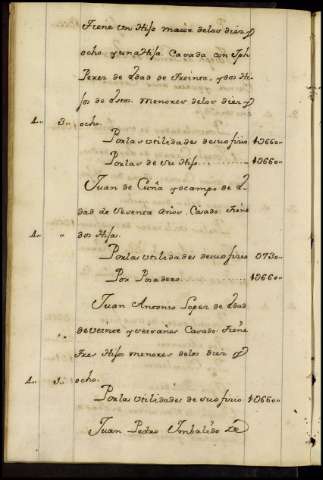 Tiene un Hijo maior delos diez y
ocho, y una Hija Casada con Jph
Perez de Edad de Treinta, y dos Hi-
jos de Dtro. menores delos diez y
1.. 3.. ocho.
Por las utilidades de su oficio 1066..
Por las de su Hijo 1066..
Juan de y ocampo de E-
dad de Sesenta Años Casado tiene
1.. " dos Hijas.
Por las utilidades de su oficio 0730..
Por Posadero 1066..
Juan Antonio Lopez de Edad
de veinte y seis años Casado tiene
" tres Hijos menores delos diez y
1.. 3.. ocho.
Por las utilidades de su oficio 1066..
Juan Pedro Imbalido de